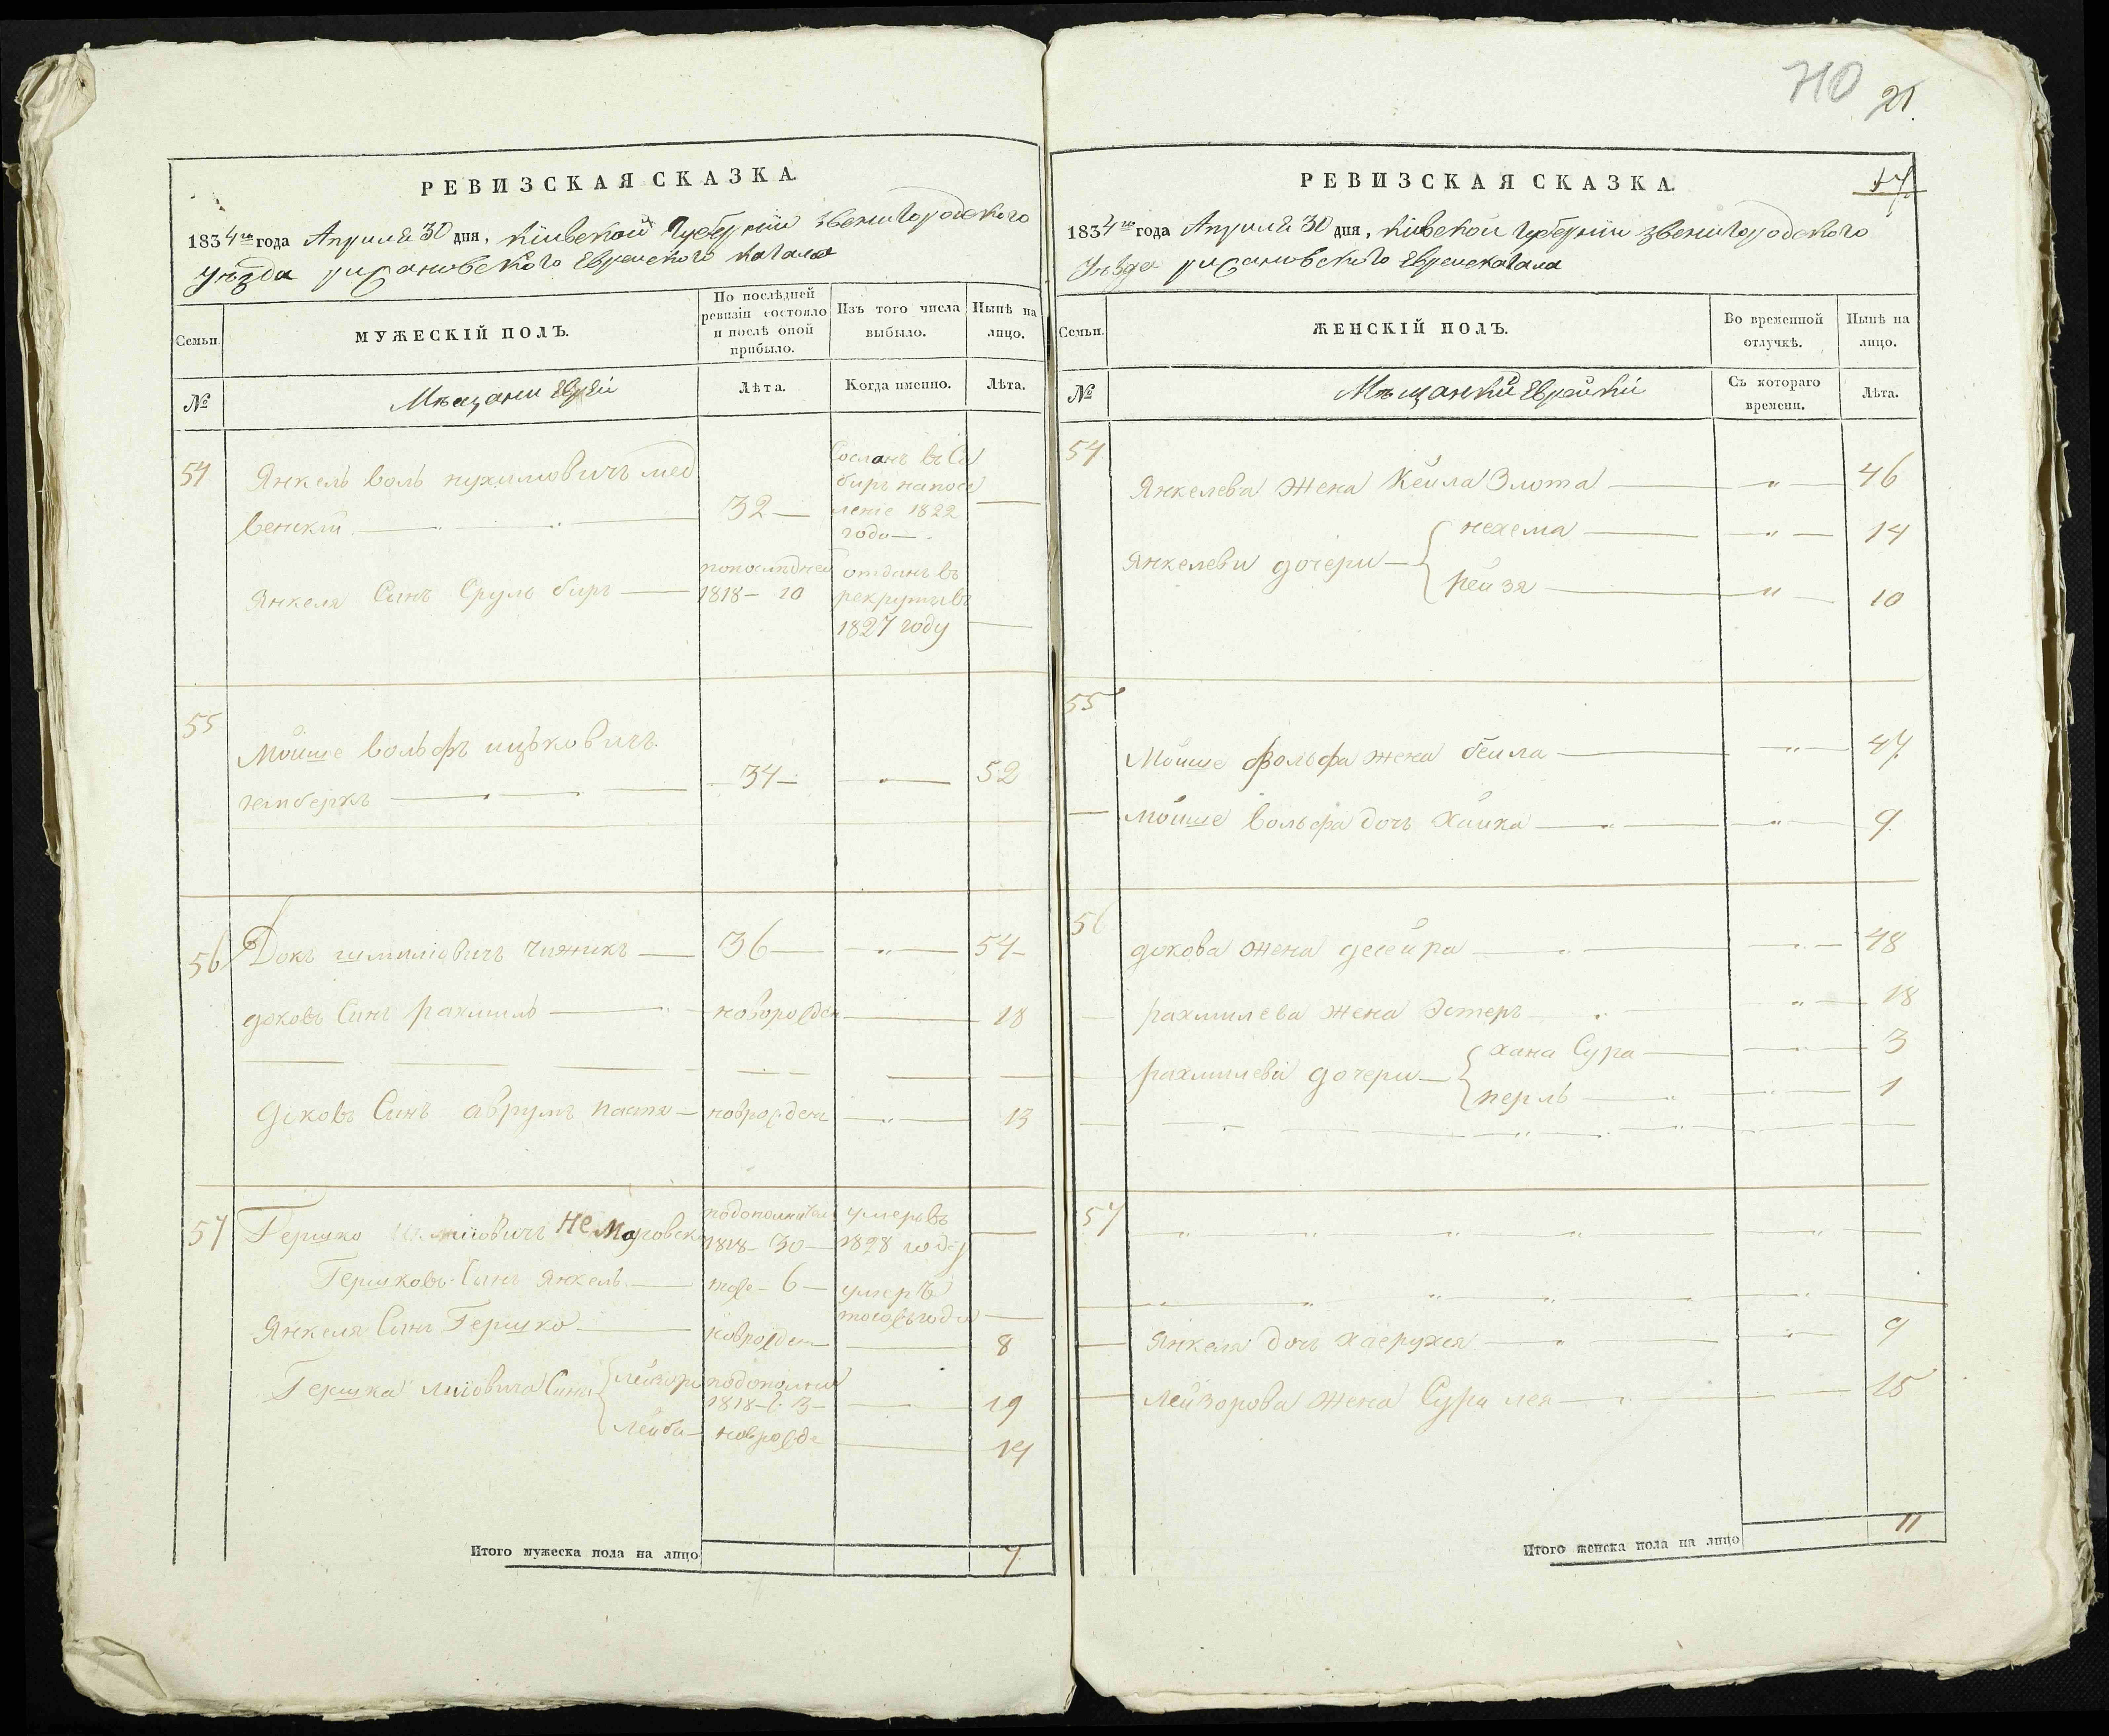 710 21.
РЕВИЗСКАЯ СКАЗКА.
1834го года Апреля 30 дня, Кіивской Губерніи Звенигородского
Уѣзда рижановского Еврейского кагала
Семьи.
МУЖЕСКІЙ ПОЛЪ.
По послѣдней ревизіи состояло и послѣ оной прибыло.
Изъ того числа выбыло.
Нынѣ на лицо.
№
Мещани Евреи
Лѣта.
Когда именно.
Лѣта.
54 Янкель воль нухимовичъ мед
венскій 32
Сосланъ въ Си
биръ на посе
леніе 1822
года
Янкеля Синъ Сруль биръ
попоследней
1818 - 10
отданъ въ
рекруты въ
1827 году
55
Мойше вольфъ ицьковичъ
34 52
56 Докъ шмиліовичъ чижикъ 36 54
доковъ Синъ рахмиль новорожден 18
Доковъ Синъ аврумъ новорожден 13
57 Гершко Немировск
1818 - 30
умеръ въ
1828 году
Гершковъ Синъ Янкель тоже - 6
умеръ
Янкеля Синъ Гершко новорожден 8
Гершка Сини
Лейзоръ
1818 19
Лейба новорожде 14
Итого мужеска пола на лицо 7
17
РЕВИЗСКАЯ СКАЗКА.
1834го года Апреля 30 дня, Кіивской Губерніи Звенигородского
Уѣзда рижановского Евреи кагала
Семьи.
ЖЕНСКІЙ ПОЛЪ.
Во временной отлучкѣ.
Нынѣ на лицо.
№
Мещанкій Еврейкій
Съ котораго времени.
Лѣта.
54
Янкелева жена Кейла Злота 46
Янкелеви дочери
нехема 14
рейзя 10
55
Мойше фольфа жена бейла 47
мойше вольфа дочь хайка 9
56
докова жена 48
рахмилева жена Эстеръ 18
рахмилеви дочери
хана Сура 3
перль 1
57
Янкеля дочь 9
лейзорова жена Сура лея 15
Итого женска пола на лицо 11